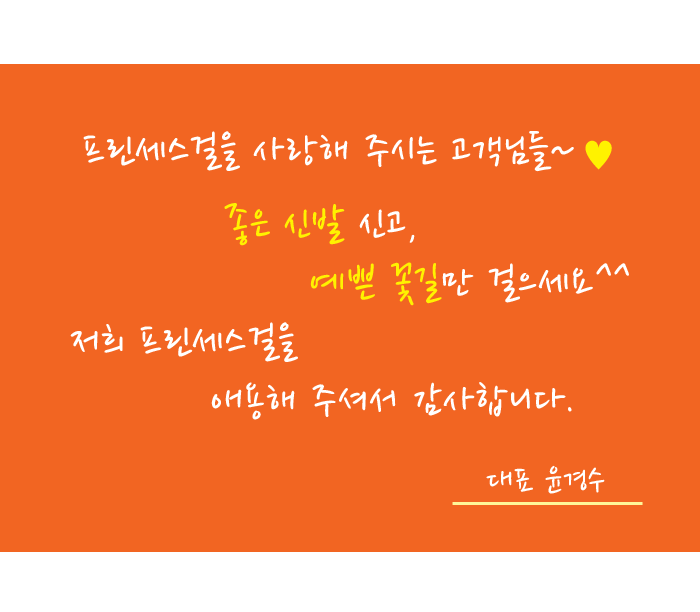 프린세스걸을 사랑해 주시는 고객님들~ ♥
좋은 신발 신고,
예쁜 꽃길만 걸으세요^^
저희 프린세스걸을
애용해 주셔서 감사합니다.
대표 윤경수